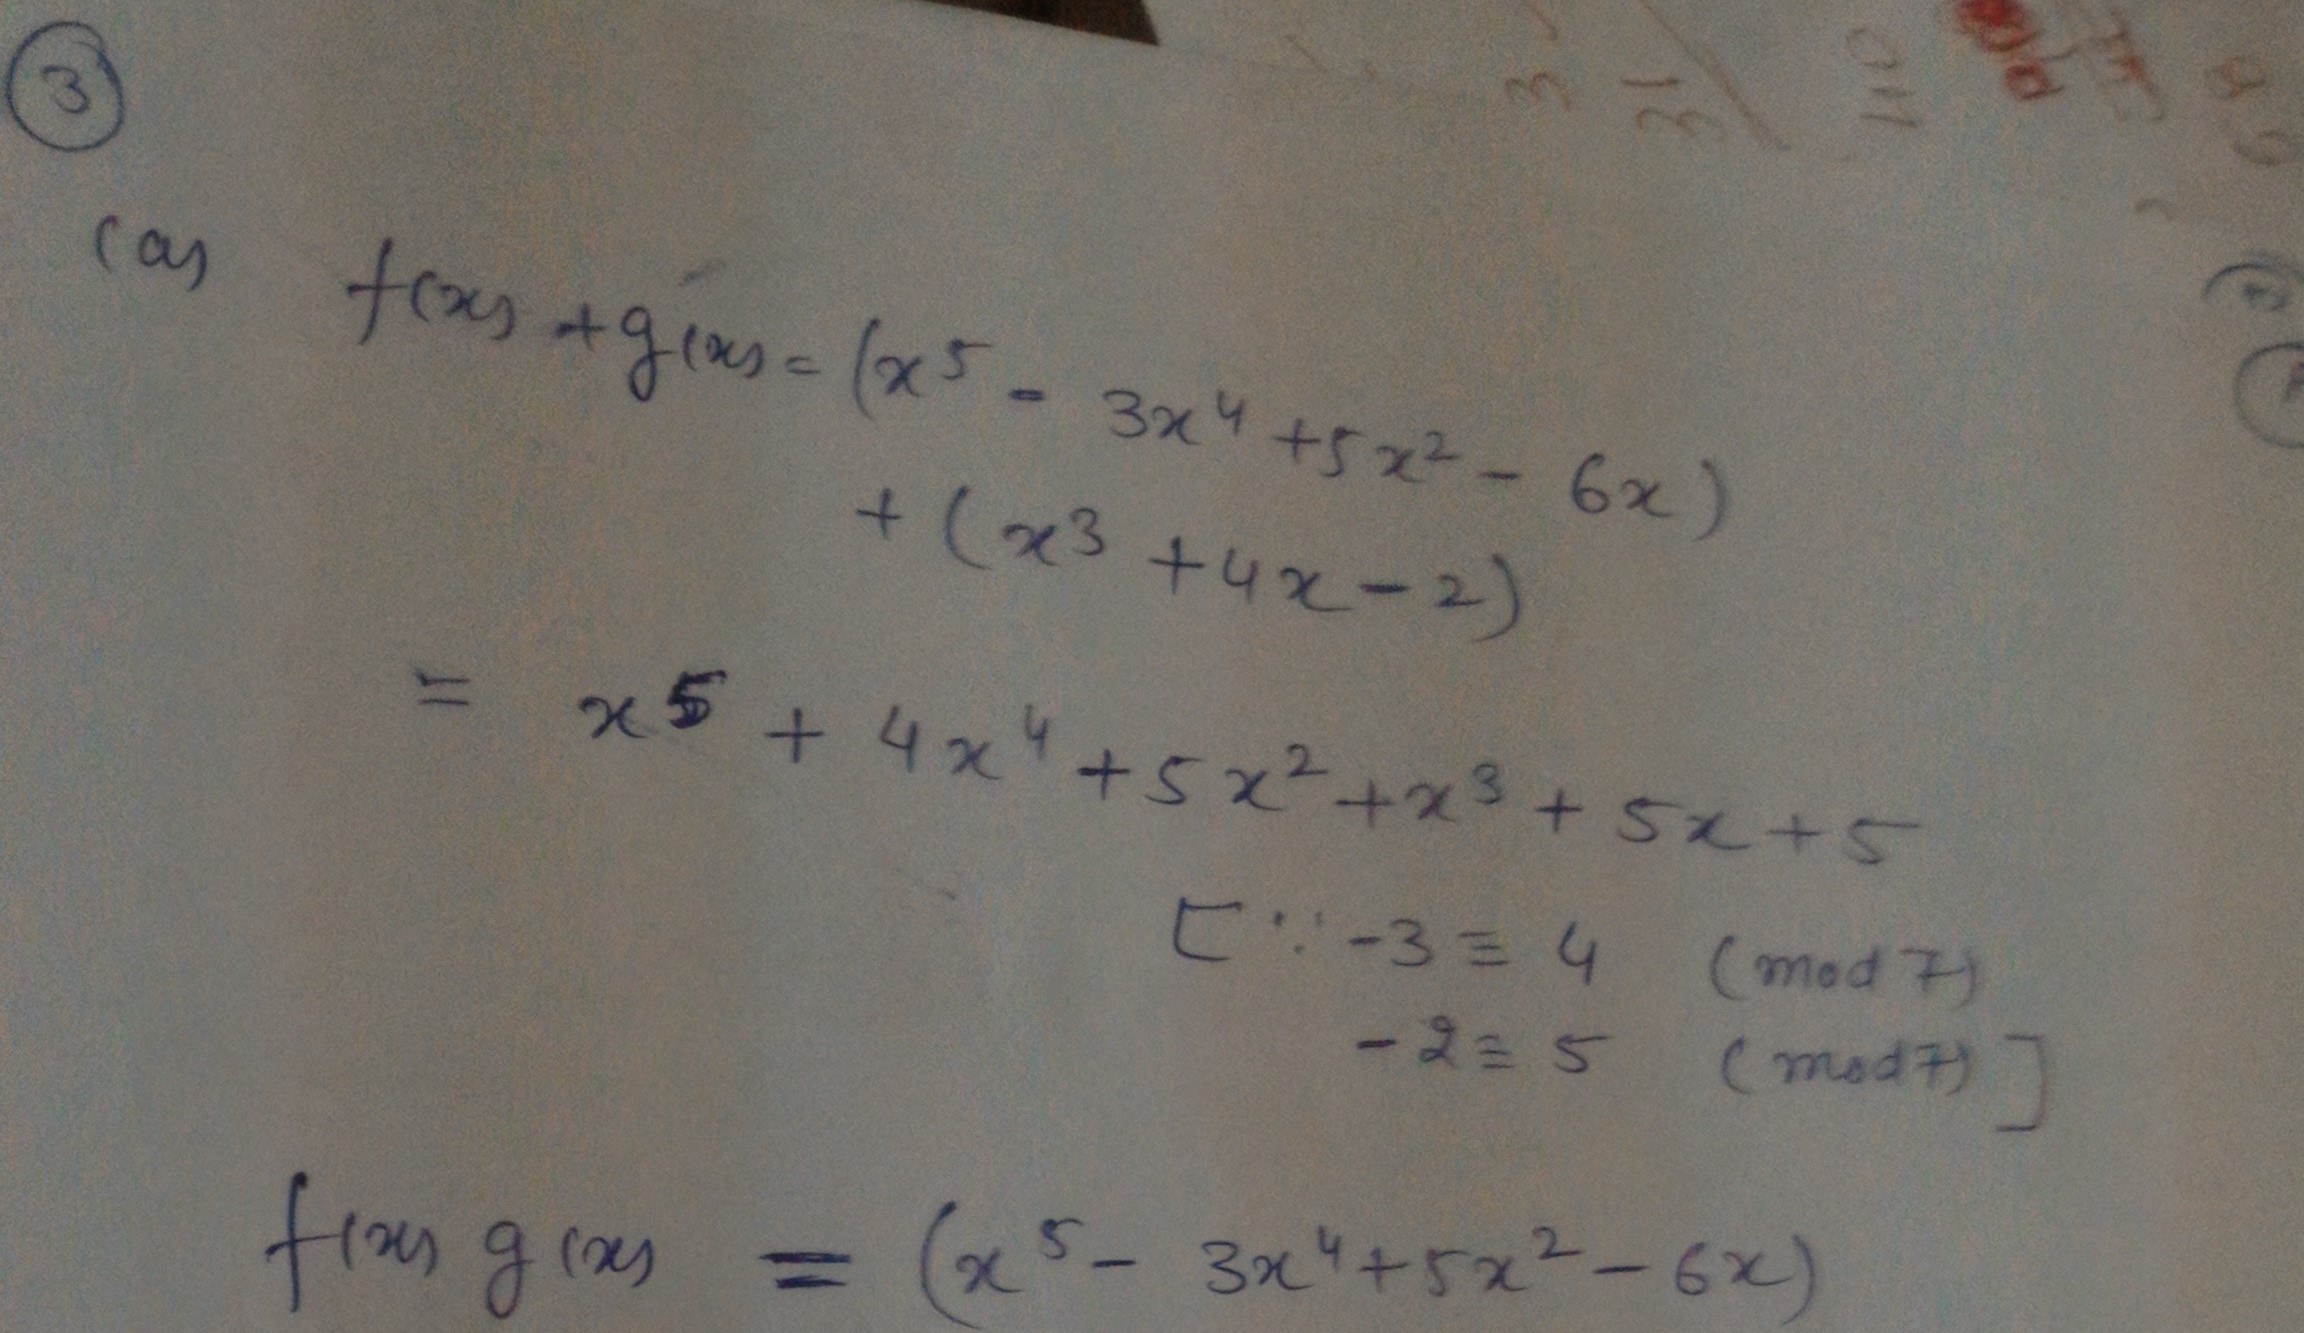 3
(a) f(x) + g(x) = (x⁵ - 3x⁴ + 5x² - 6x)
+ (x³ + 4x - 2)
= x⁵ + 4x⁴ + 5x² + x³ + 5x + 5
[∵ -3 ≡ 4 (mod 7)
-2 ≡ 5 (mod 7)]
f(x) g(x) = (x⁵ - 3x⁴ + 5x² - 6x)